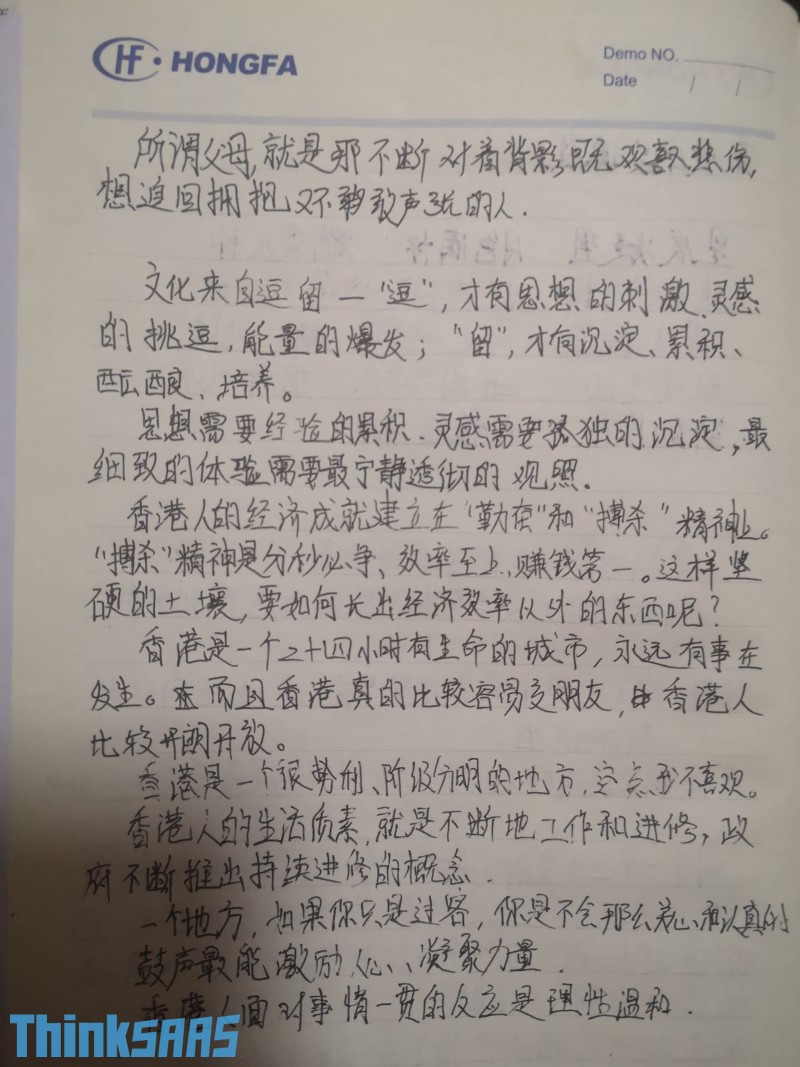 HF · HONGFA
Demo NO.
Date / /
所谓父母,就是那不断对着背影既欢喜又悲伤,
想追回拥抱又不敢声张的人.
文化来自逗留—"逗",才有思想的刺激、灵感
的挑逗,能量的爆发;"留",才有沉淀、累积、
酝酿、培养。
思想需要经验的累积.灵感需要孤独的沉淀,最
细致的体验需要最宁静透彻的观照.
香港人的经济成就建立在"勤奋"和"搏杀"精神上。
"搏杀"精神是分秒必争、效率至上、赚钱第一。这样坚
硬的土壤,要如何长出经济效率以外的东西呢?
香港是一个二十四小时有生命的城市,永远有事在
发生。而且香港真的比较容易交朋友,香港人
比较开朗开放。
香港是一个很势利、阶级分明的地方,这点我不喜欢。
香港人的生活质素,就是不断地工作和进修,政
府不断推出持续进修的概念.
一个地方,如果你只是过客,你是不会那么关心和认真的
鼓声最能激励人心、凝聚力量.
香港人面对事情一贯的反应是理性温和.
ThinkSAAS